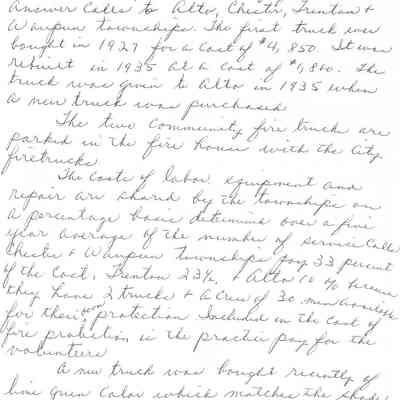 answer calls to Alto, Chester, Trenton +
Waupun townships. The first truck was
bought in 1927 for a cost of $4,850. It was
rebuilt in 1935 at a cost of $1,800. The
truck was given to Alto in 1935 when
a new truck was purchased.
The two Community fire trucks are
parked in the fire house with the City
firetrucks.
The costs of labor, equipment and
repair are shared by the townships on
a percentage basis determine over a five
year average of the number of service calls
Chester + Waupun townships pay 33 percent
of the cost, Trenton 23%, + Alto 10% because
they have 2 trucks + a crew of 30 men available
for their own protection. Included in the cost of
fire protection is the practice pay for the
volunteers
A new truck was bought recently of
lime green color which matches the shade